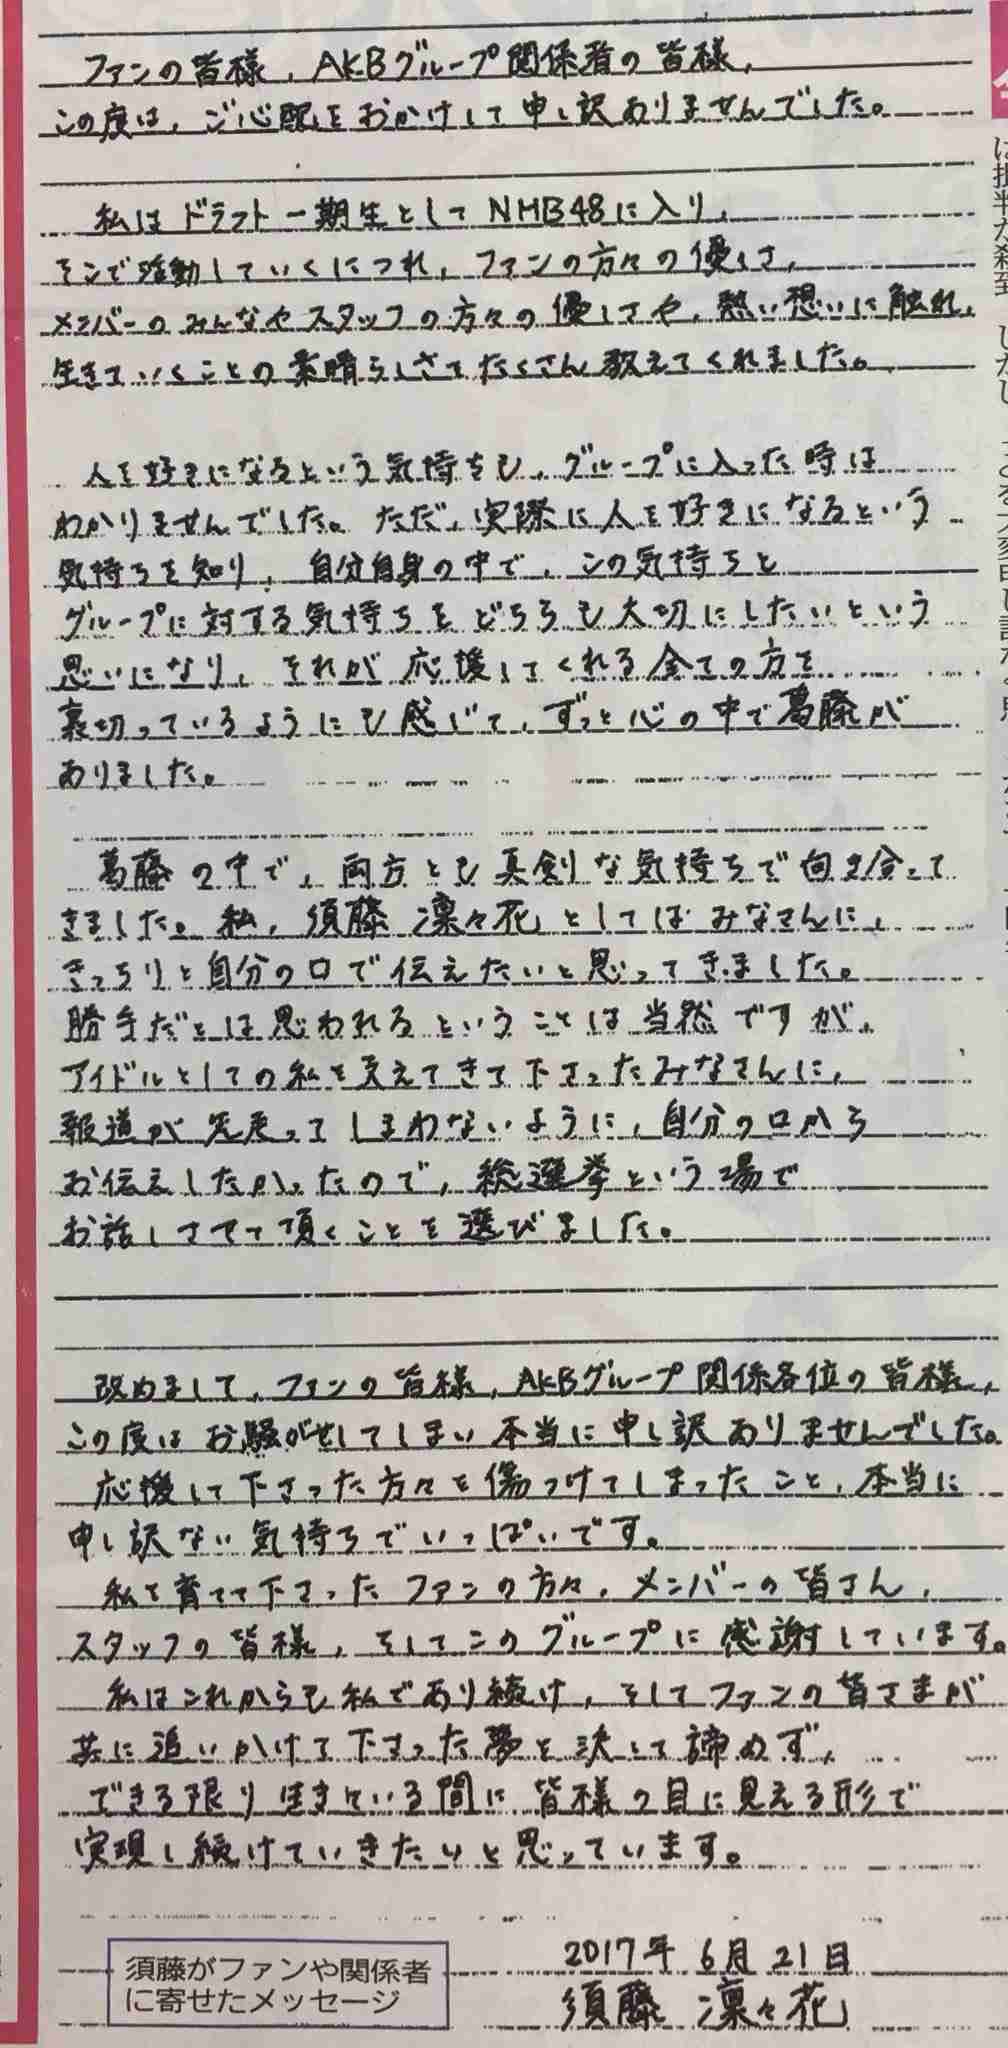 ファンの皆様、AKBグループ関係者の皆様、
この度は、ご心配をおかけして申し訳ありませんでした。
私はドラフト一期生としてNMB48に入り、
そこで活動していくにつれ、ファンの方々の優しさ、
メンバーのみんなやスタッフの方々の優しさや、熱い想いに触れ、
生きていくことの素晴らしさをたくさん教えてくれました。
人を好きになるという気持ちも、グループに入った時は
わかりませんでした。ただ、実際に人を好きになるという
気持ちを知り、自分自身の中で、この気持ちと
グループに対する気持ちをどちらも大切にしたいという
思いになり、それが応援してくれる全ての方を
裏切っているようにも感じて、ずっと心の中で葛藤が
ありました。
葛藤の中で、両方とも真剣な気持ちで向き合って
きました。私、須藤凜々花としてはみなさんに、
きっちりと自分の口で伝えたいと思ってきました。
勝手だとは思われるということは当然ですが、
アイドルとしての私を支えてきて下さったみなさんに、
報道が先走ってしまわないように、自分の口から
お伝えしたかったので、総選挙という場で
お話しさせて頂くことを選びました。
改めまして、ファンの皆様、AKBグループ関係各位の皆様、
この度はお騒がせしてしまい本当に申し訳ありませんでした。
応援して下さった方々を傷つけてしまったこと、本当に
申し訳ない気持ちでいっぱいです。
私を育てて下さったファンの方々、メンバーの皆さん、
スタッフの皆様、そしてこのグループに感謝しています。
私はこれからも私であり続け、そしてファンの皆さまが
共に追いかけて下さった夢を決して諦めず、
できる限り生きている間に皆様の目に見える形で
実現し続けていきたいと思っています。
2017年6月21日
須藤 凜々花
須藤がファンや関係者
に寄せたメッセージ